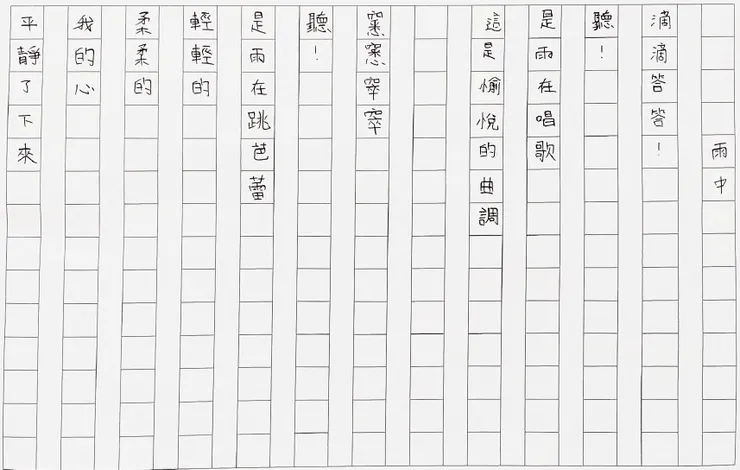 雨中
滴滴答答!
聽!
是雨在唱歌
這是愉悅的曲調
窸窸窣窣
聽!
是雨在跳芭蕾
輕輕的
柔柔的
我的心
平靜了下來